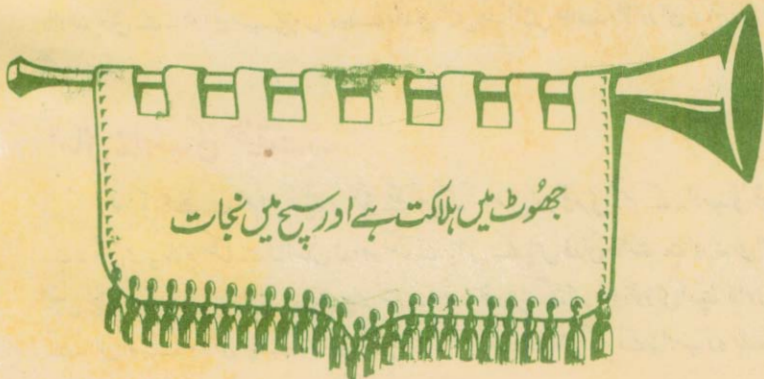 جھُوٹ میں ہلاکت ہے اور سچ میں نجات